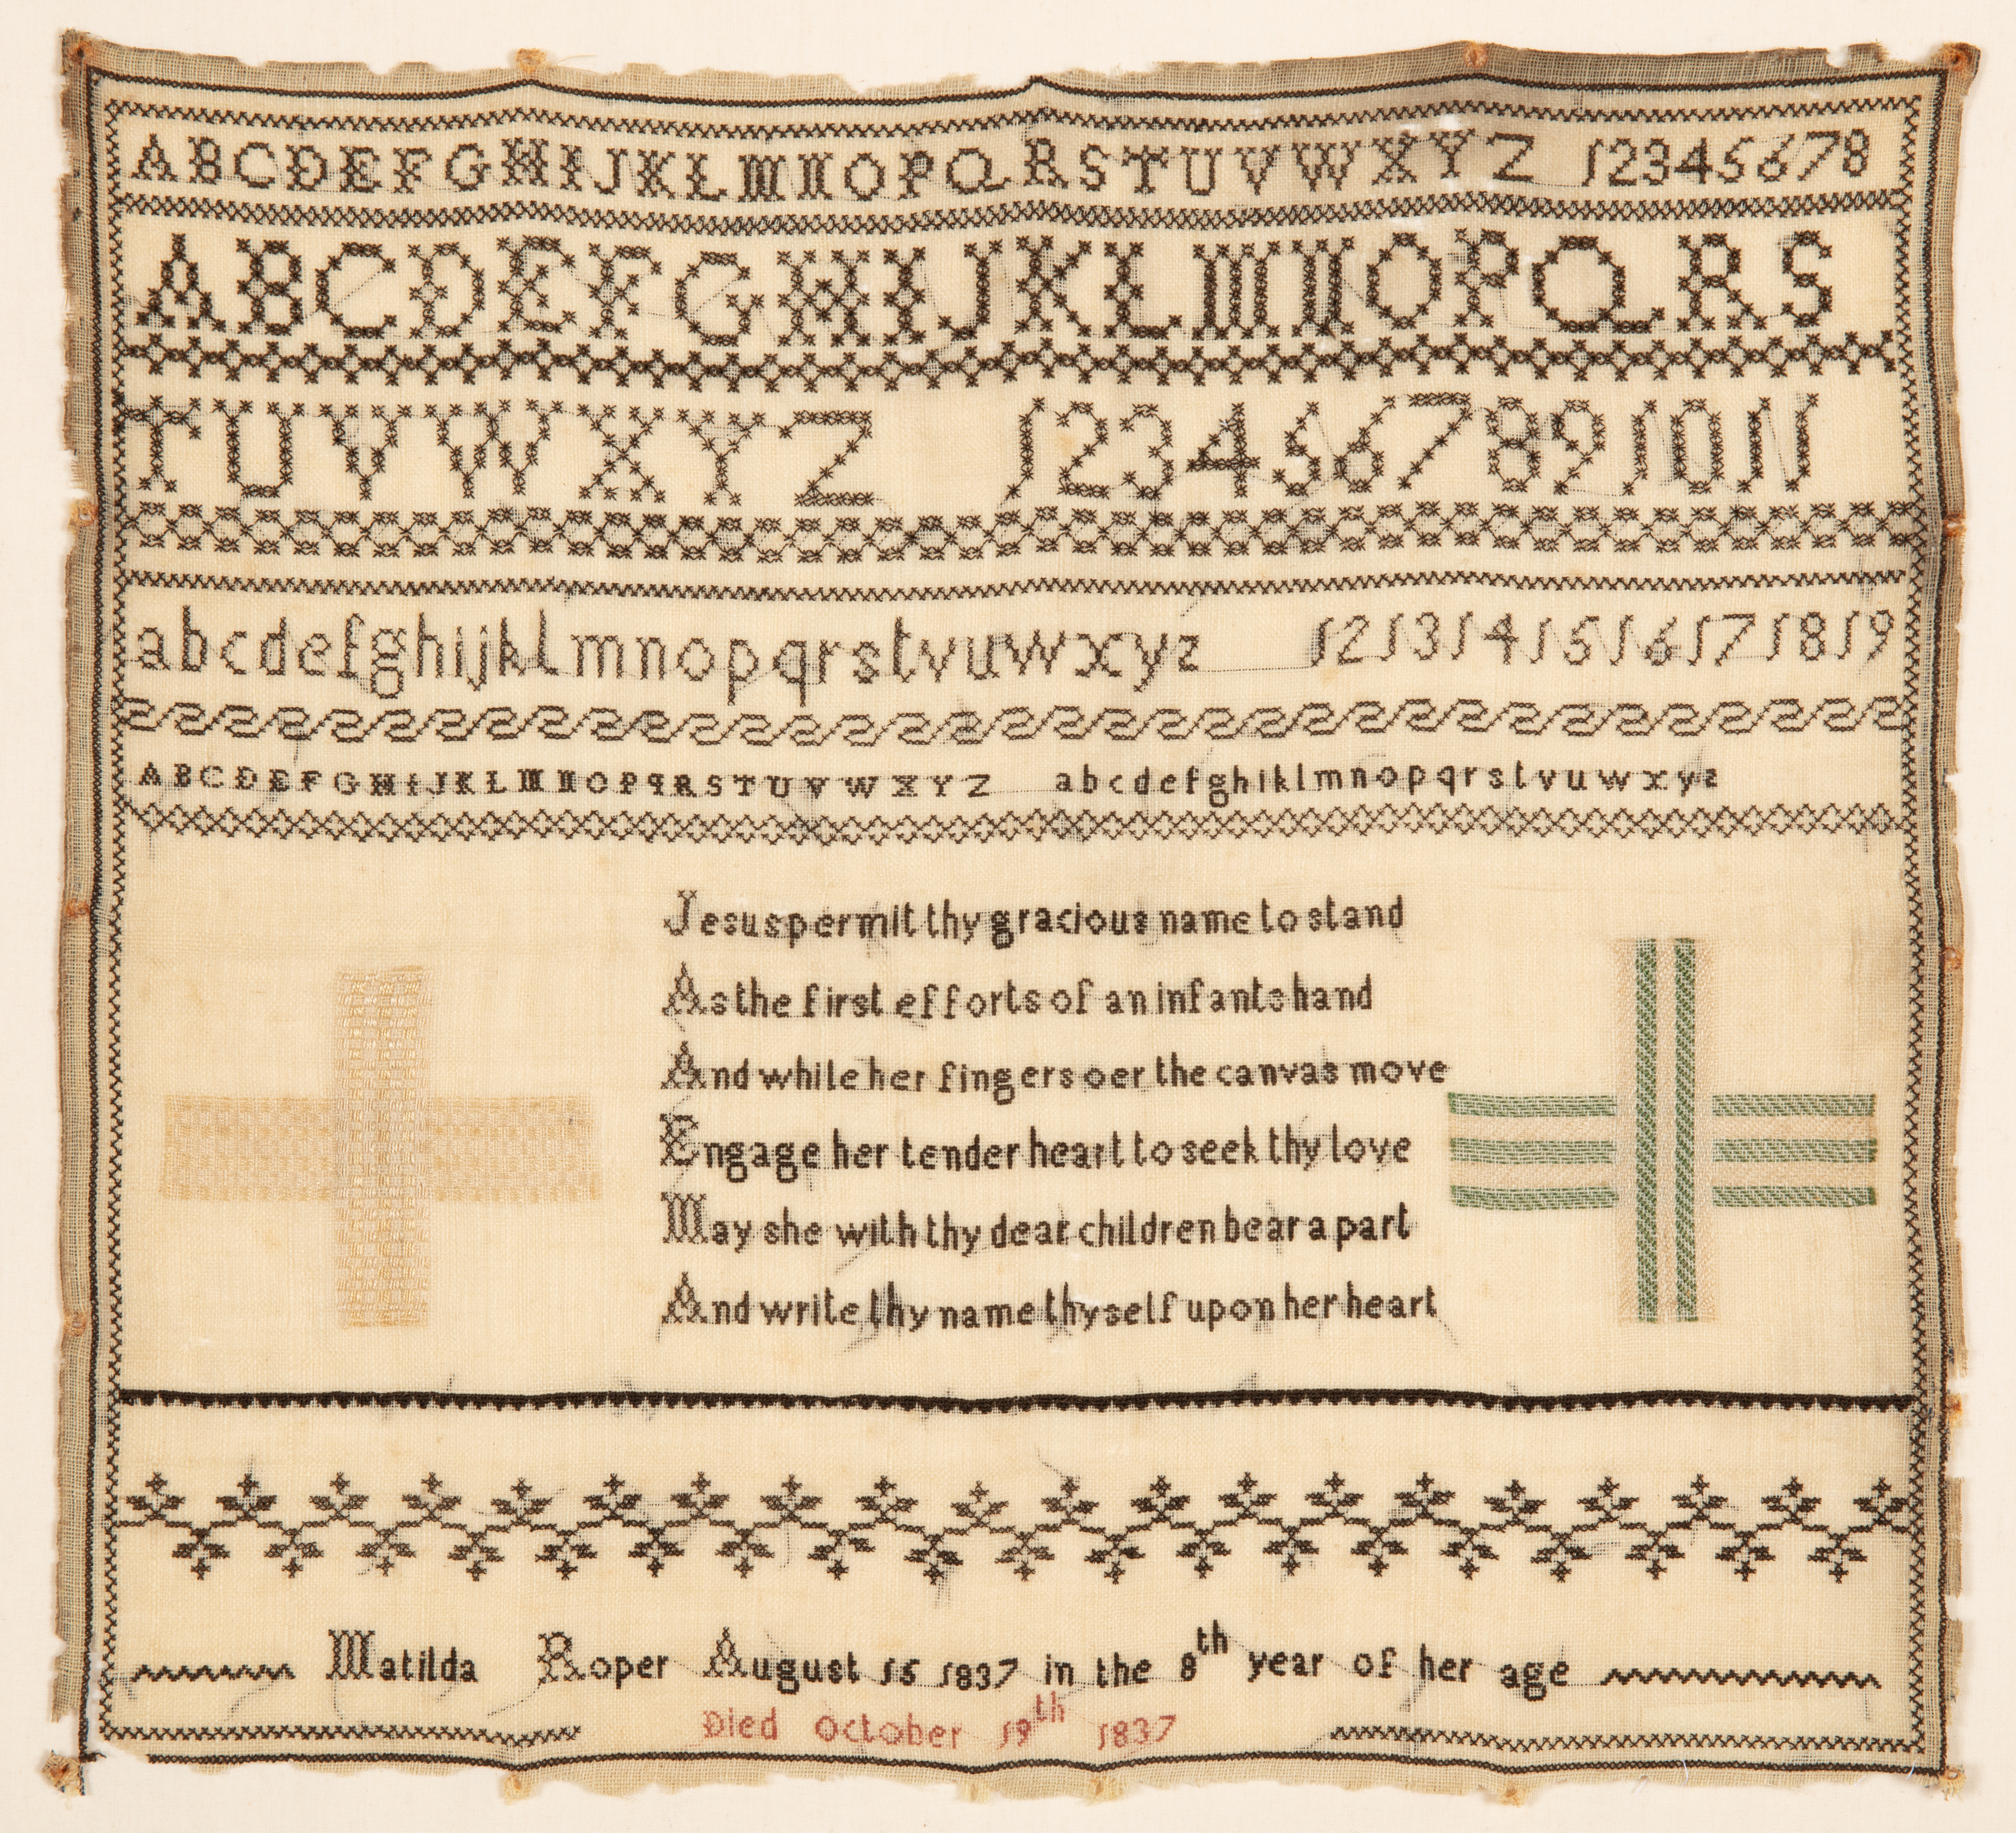 ABCDEFGHIJKLMNOPQRSTUVWXYZ 12345678
ABCDEFGHIJKLMNOPQRS
TUVWXYZ 1234567891011
abcdefghijklmnopqrstvuwxyz 1213141516171819
ABCDEFGHIJKLMNOPQRSTUVWXYZ abcdefghiklmnopqrstvuwxyz
Jesus permit thy gracious name to stand
As the first efforts of an infants hand
And while her fingers oer the canvas move
Engage her tender heart to seek thy love
May she with thy dear children bear a part
And write thy name thyself upon her heart
Matilda Roper August 15 1837 in the 8th year of her age
Died October 19th 1837